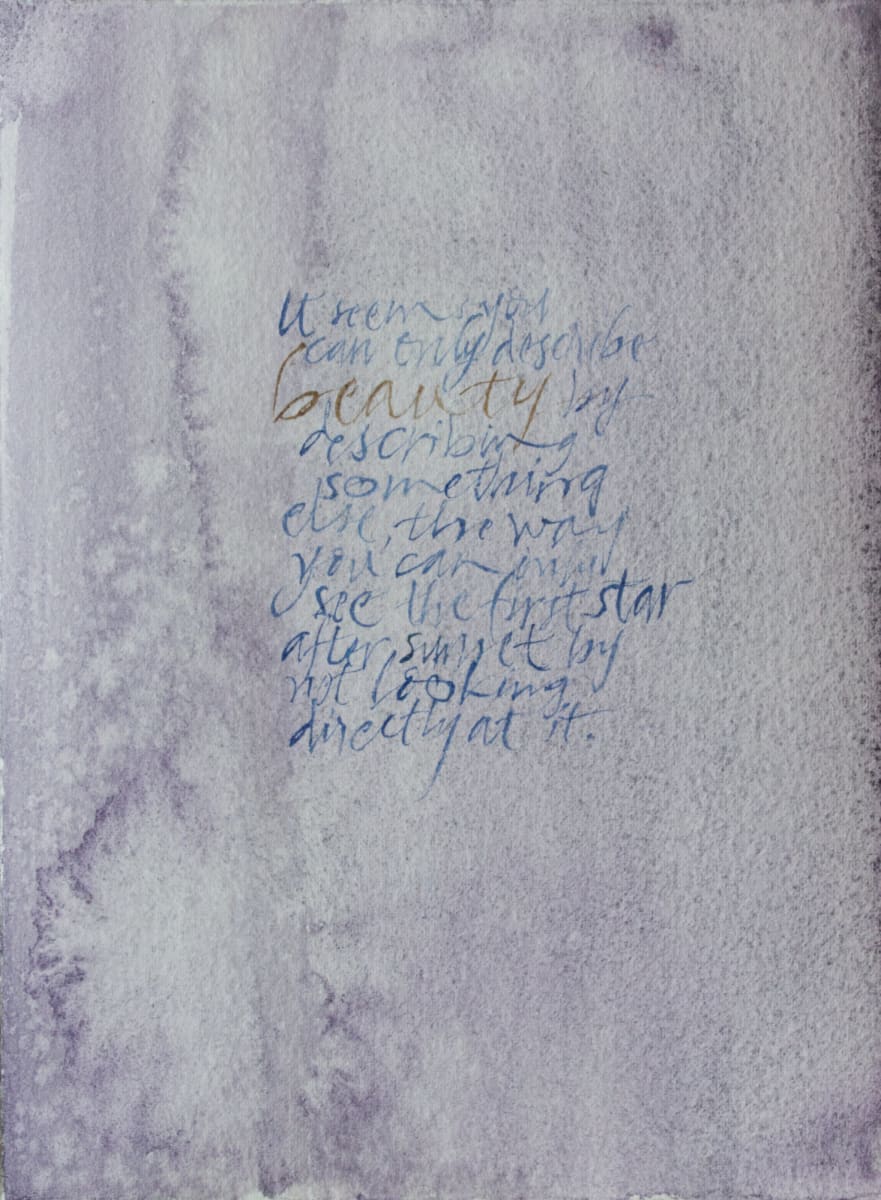 It seems you
can only describe
beauty by
describing
something
else, the way
you can only
see the first star
after sunset by
not looking
directly at it.